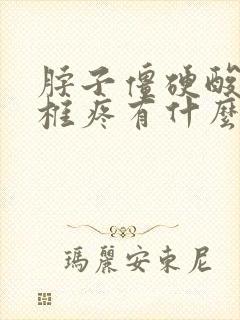 脖子僵硬酸
框疼有什麼
瑪麗安東尼